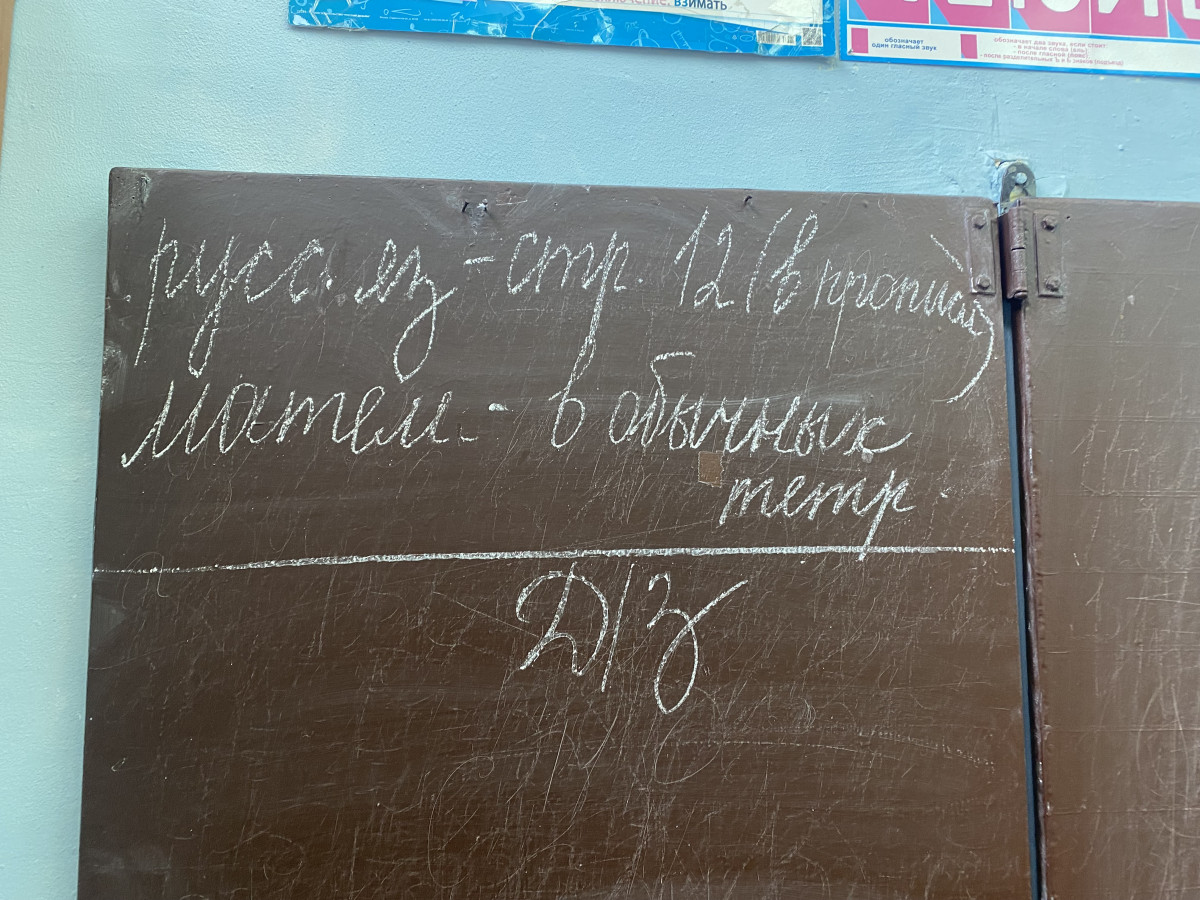 ключение: взимать
обозначает
один гласный звук
обозначает два звука, если стоит:
- в начале слова (ель)
- после гласной (поют)
- после разделительных Ъ и Ь знаков (подъезд)
русс. яз - стр. 12 (в прописях)
матем. - в обычных
тетр
Д/З